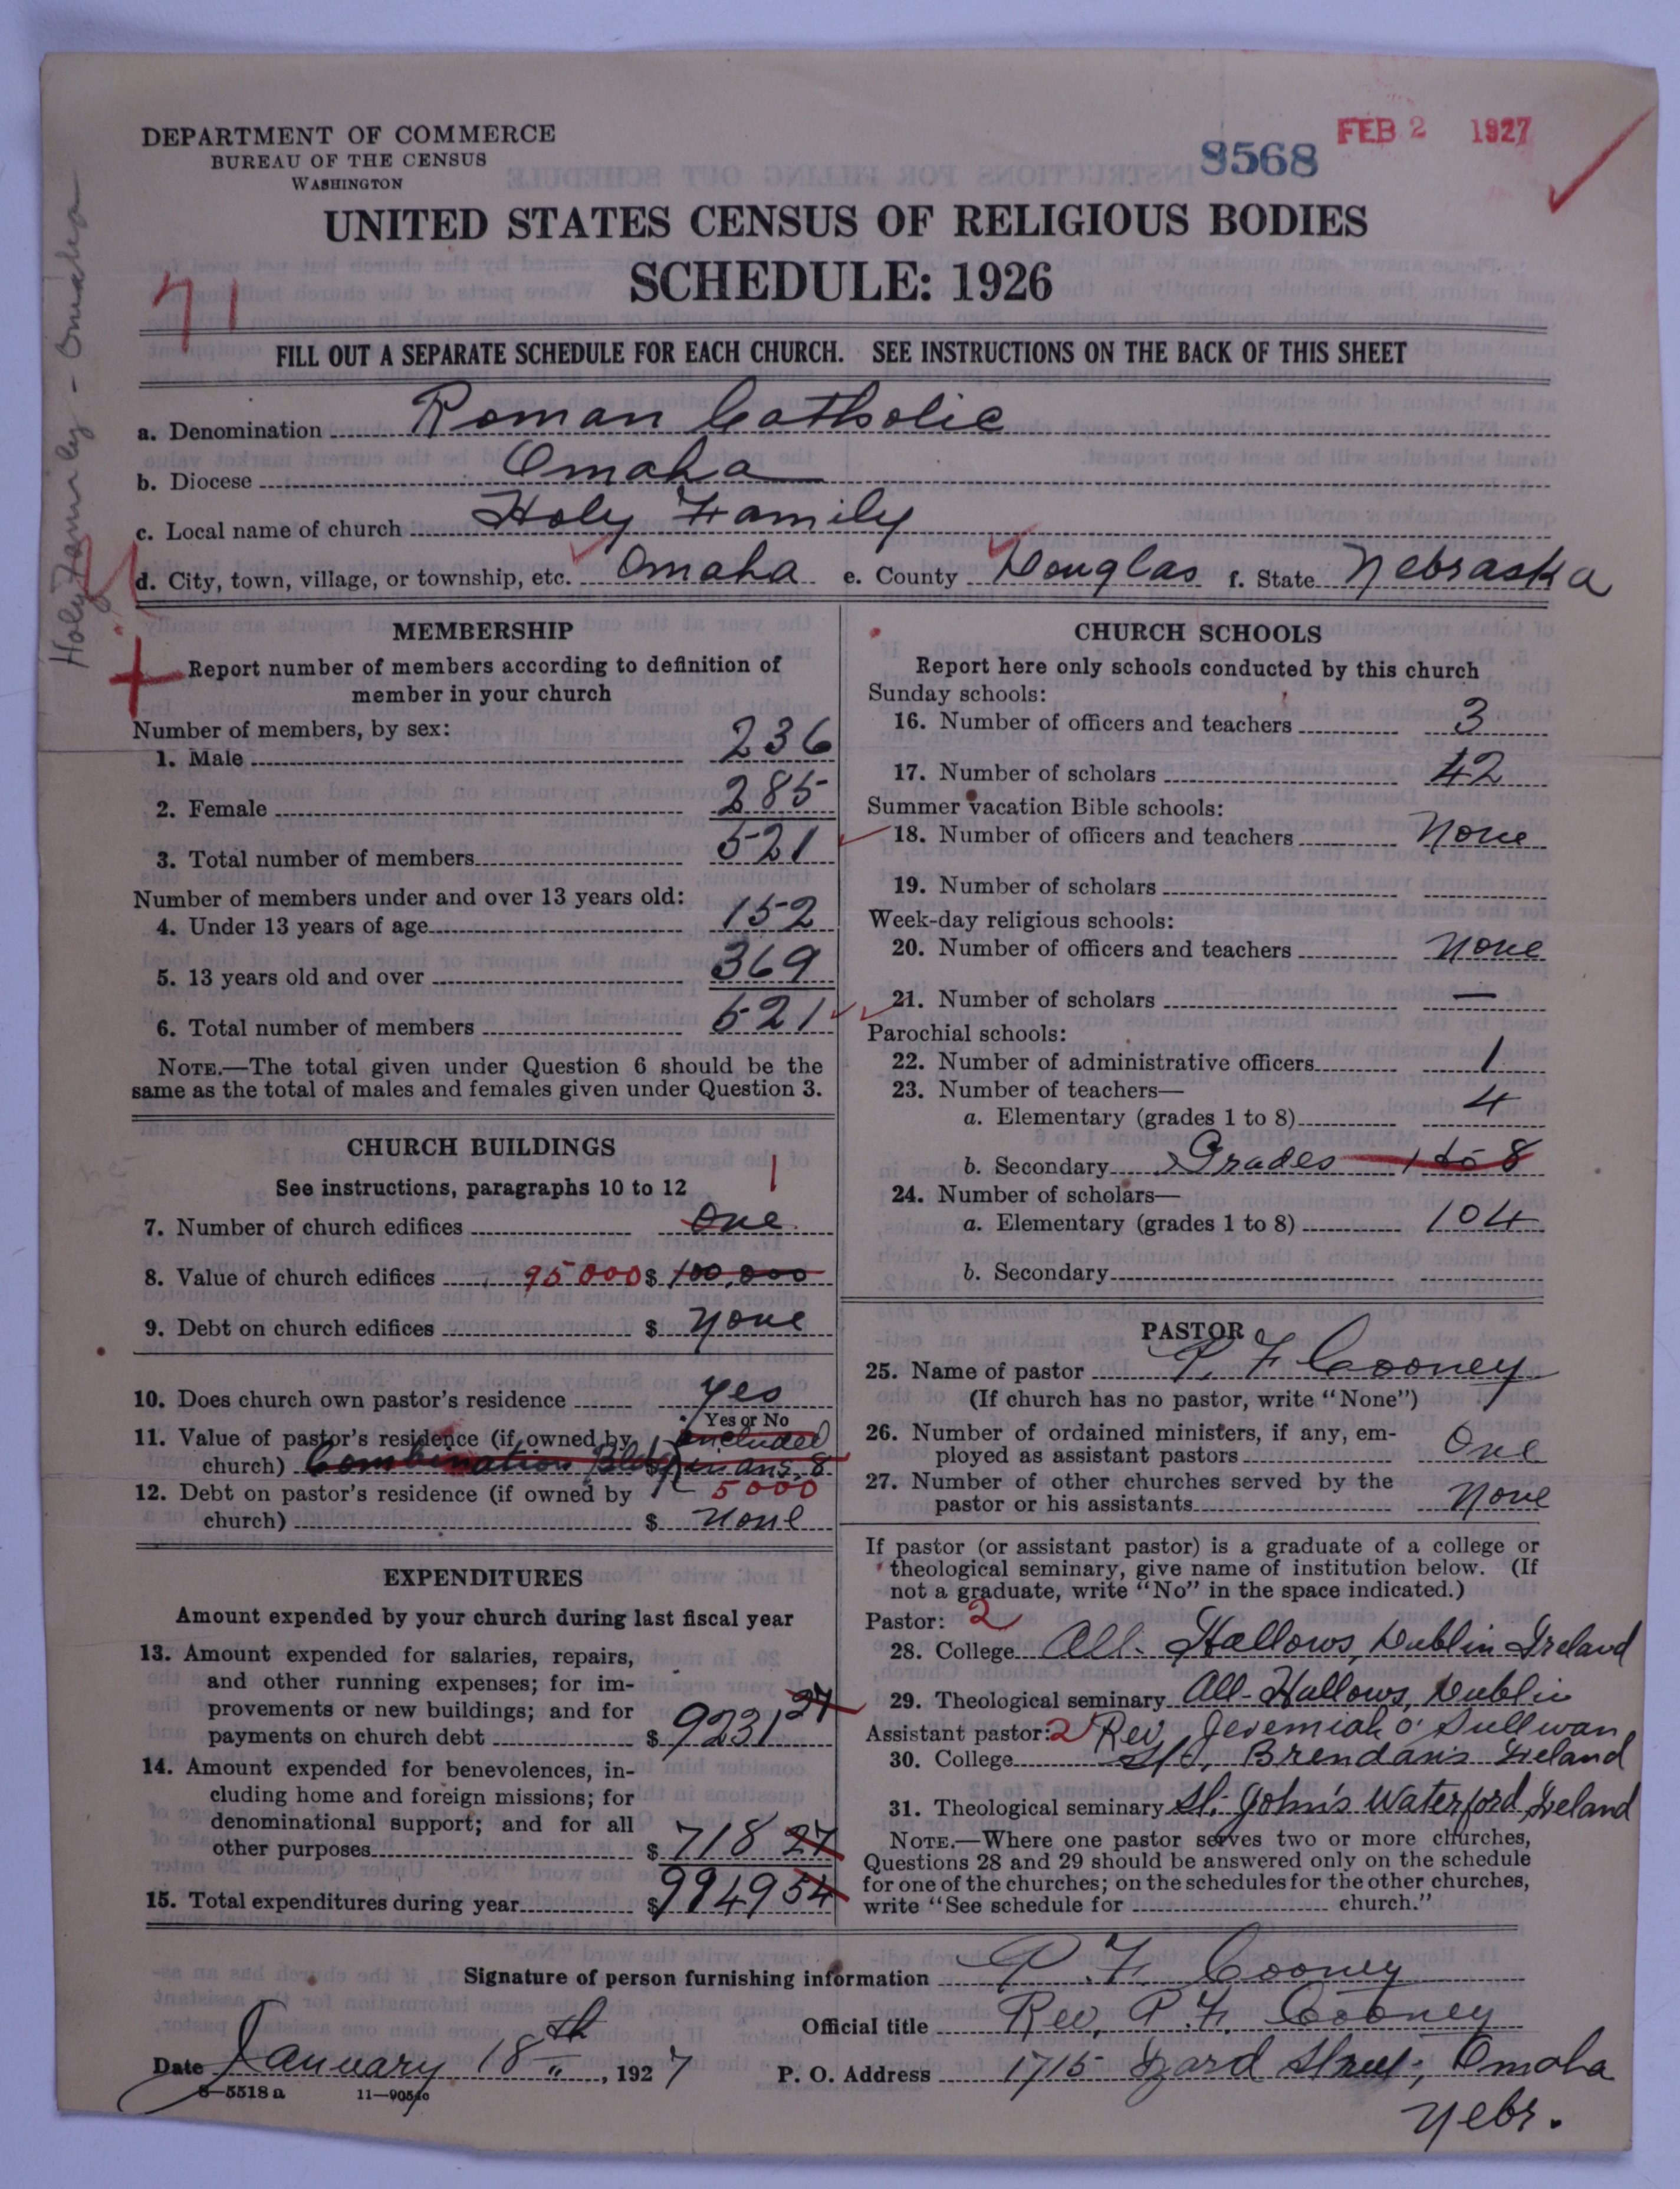 DEPARTMENT OF COMMERCE
BUREAU OF THE CENSUS
WASHINGTON
8568
FEB 2 1927
UNITED STATES CENSUS OF RELIGIOUS BODIES
SCHEDULE: 1926
71
Holy Family - Omaha
FILL OUT A SEPARATE SCHEDULE FOR EACH CHURCH. SEE INSTRUCTIONS ON THE BACK OF THIS SHEET
a. Denomination Roman Catholic
b. Diocese Omaha
c. Local name of church Holy Family
d. City, town, village, or township, etc. Omaha e. County Douglas f. State Nebraska
MEMBERSHIP
Report number of members according to definition of
member in your church
Number of members, by sex:
1. Male 236
2. Female 285
3. Total number of members 521
Number of members under and over 13 years old:
4. Under 13 years of age 152
5. 13 years old and over 369
6. Total number of members 521
NOTE.—The total given under Question 6 should be the
same as the total of males and females given under Question 3.
CHURCH BUILDINGS
See instructions, paragraphs 10 to 12
1
7. Number of church edifices One
8. Value of church edifices 95000 $ 100,000
9. Debt on church edifices $ None
10. Does church own pastor's residence Yes
Yes or No
11. Value of pastor's residence (if owned by included
church) Combination Bldg $ in ans. 8
5000
12. Debt on pastor's residence (if owned by
church) $ None
EXPENDITURES
Amount expended by your church during last fiscal year
13. Amount expended for salaries, repairs,
and other running expenses; for im-
provements or new buildings; and for
payments on church debt $ 9231 27
14. Amount expended for benevolences, in-
cluding home and foreign missions; for
denominational support; and for all
other purposes $ 718 27
15. Total expenditures during year $ 9949 54
CHURCH SCHOOLS
Report here only schools conducted by this church
Sunday schools:
16. Number of officers and teachers 3
17. Number of scholars 42
Summer vacation Bible schools:
18. Number of officers and teachers None
19. Number of scholars
Week-day religious schools:
20. Number of officers and teachers None
21. Number of scholars —
Parochial schools:
22. Number of administrative officers 1
23. Number of teachers—
a. Elementary (grades 1 to 8) 4
b. Secondary Grades 1 to 8
24. Number of scholars—
a. Elementary (grades 1 to 8) 104
b. Secondary
PASTOR
25. Name of pastor P. F. Cooney
(If church has no pastor, write "None")
26. Number of ordained ministers, if any, em-
ployed as assistant pastors One
27. Number of other churches served by the
pastor or his assistants None
If pastor (or assistant pastor) is a graduate of a college or
theological seminary, give name of institution below. (If
not a graduate, write "No" in the space indicated.)
Pastor: 2
28. College All Hallows, Dublin Ireland
29. Theological seminary All-Hallows, Dublin
Assistant pastor: 2 Rev Jeremiah O'Sullivan
30. College St. Brendan's Ireland
31. Theological seminary St. John's Waterford Ireland
NOTE.—Where one pastor serves two or more churches,
Questions 28 and 29 should be answered only on the schedule
for one of the churches; on the schedules for the other churches,
write "See schedule for church."
Signature of person furnishing information P. F. Cooney
Official title Rev. P. F. Cooney
Date January 18th, 1927 P. O. Address 1715 Izard Street, Omaha
Nebr.
8—5518 a 11—9051c